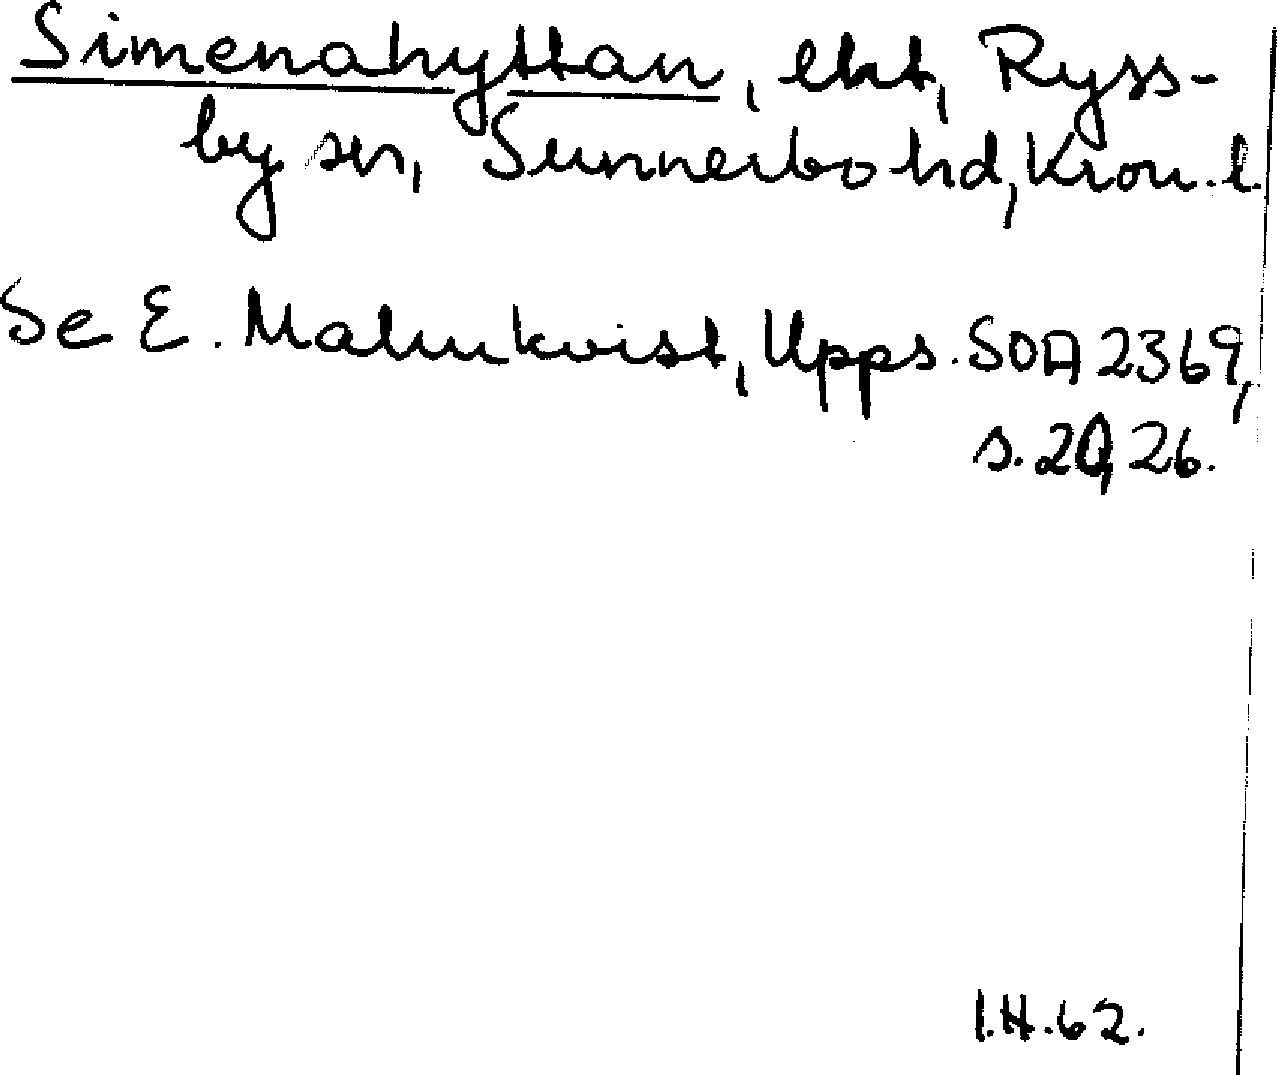 Simenahyttan, ekt, Ryss-
by sn, Sunnerbo hd, Kron. l.
Se E. Malmkvist, Upps. SOA 2369,
s. 20, 26.
I.H. 62.